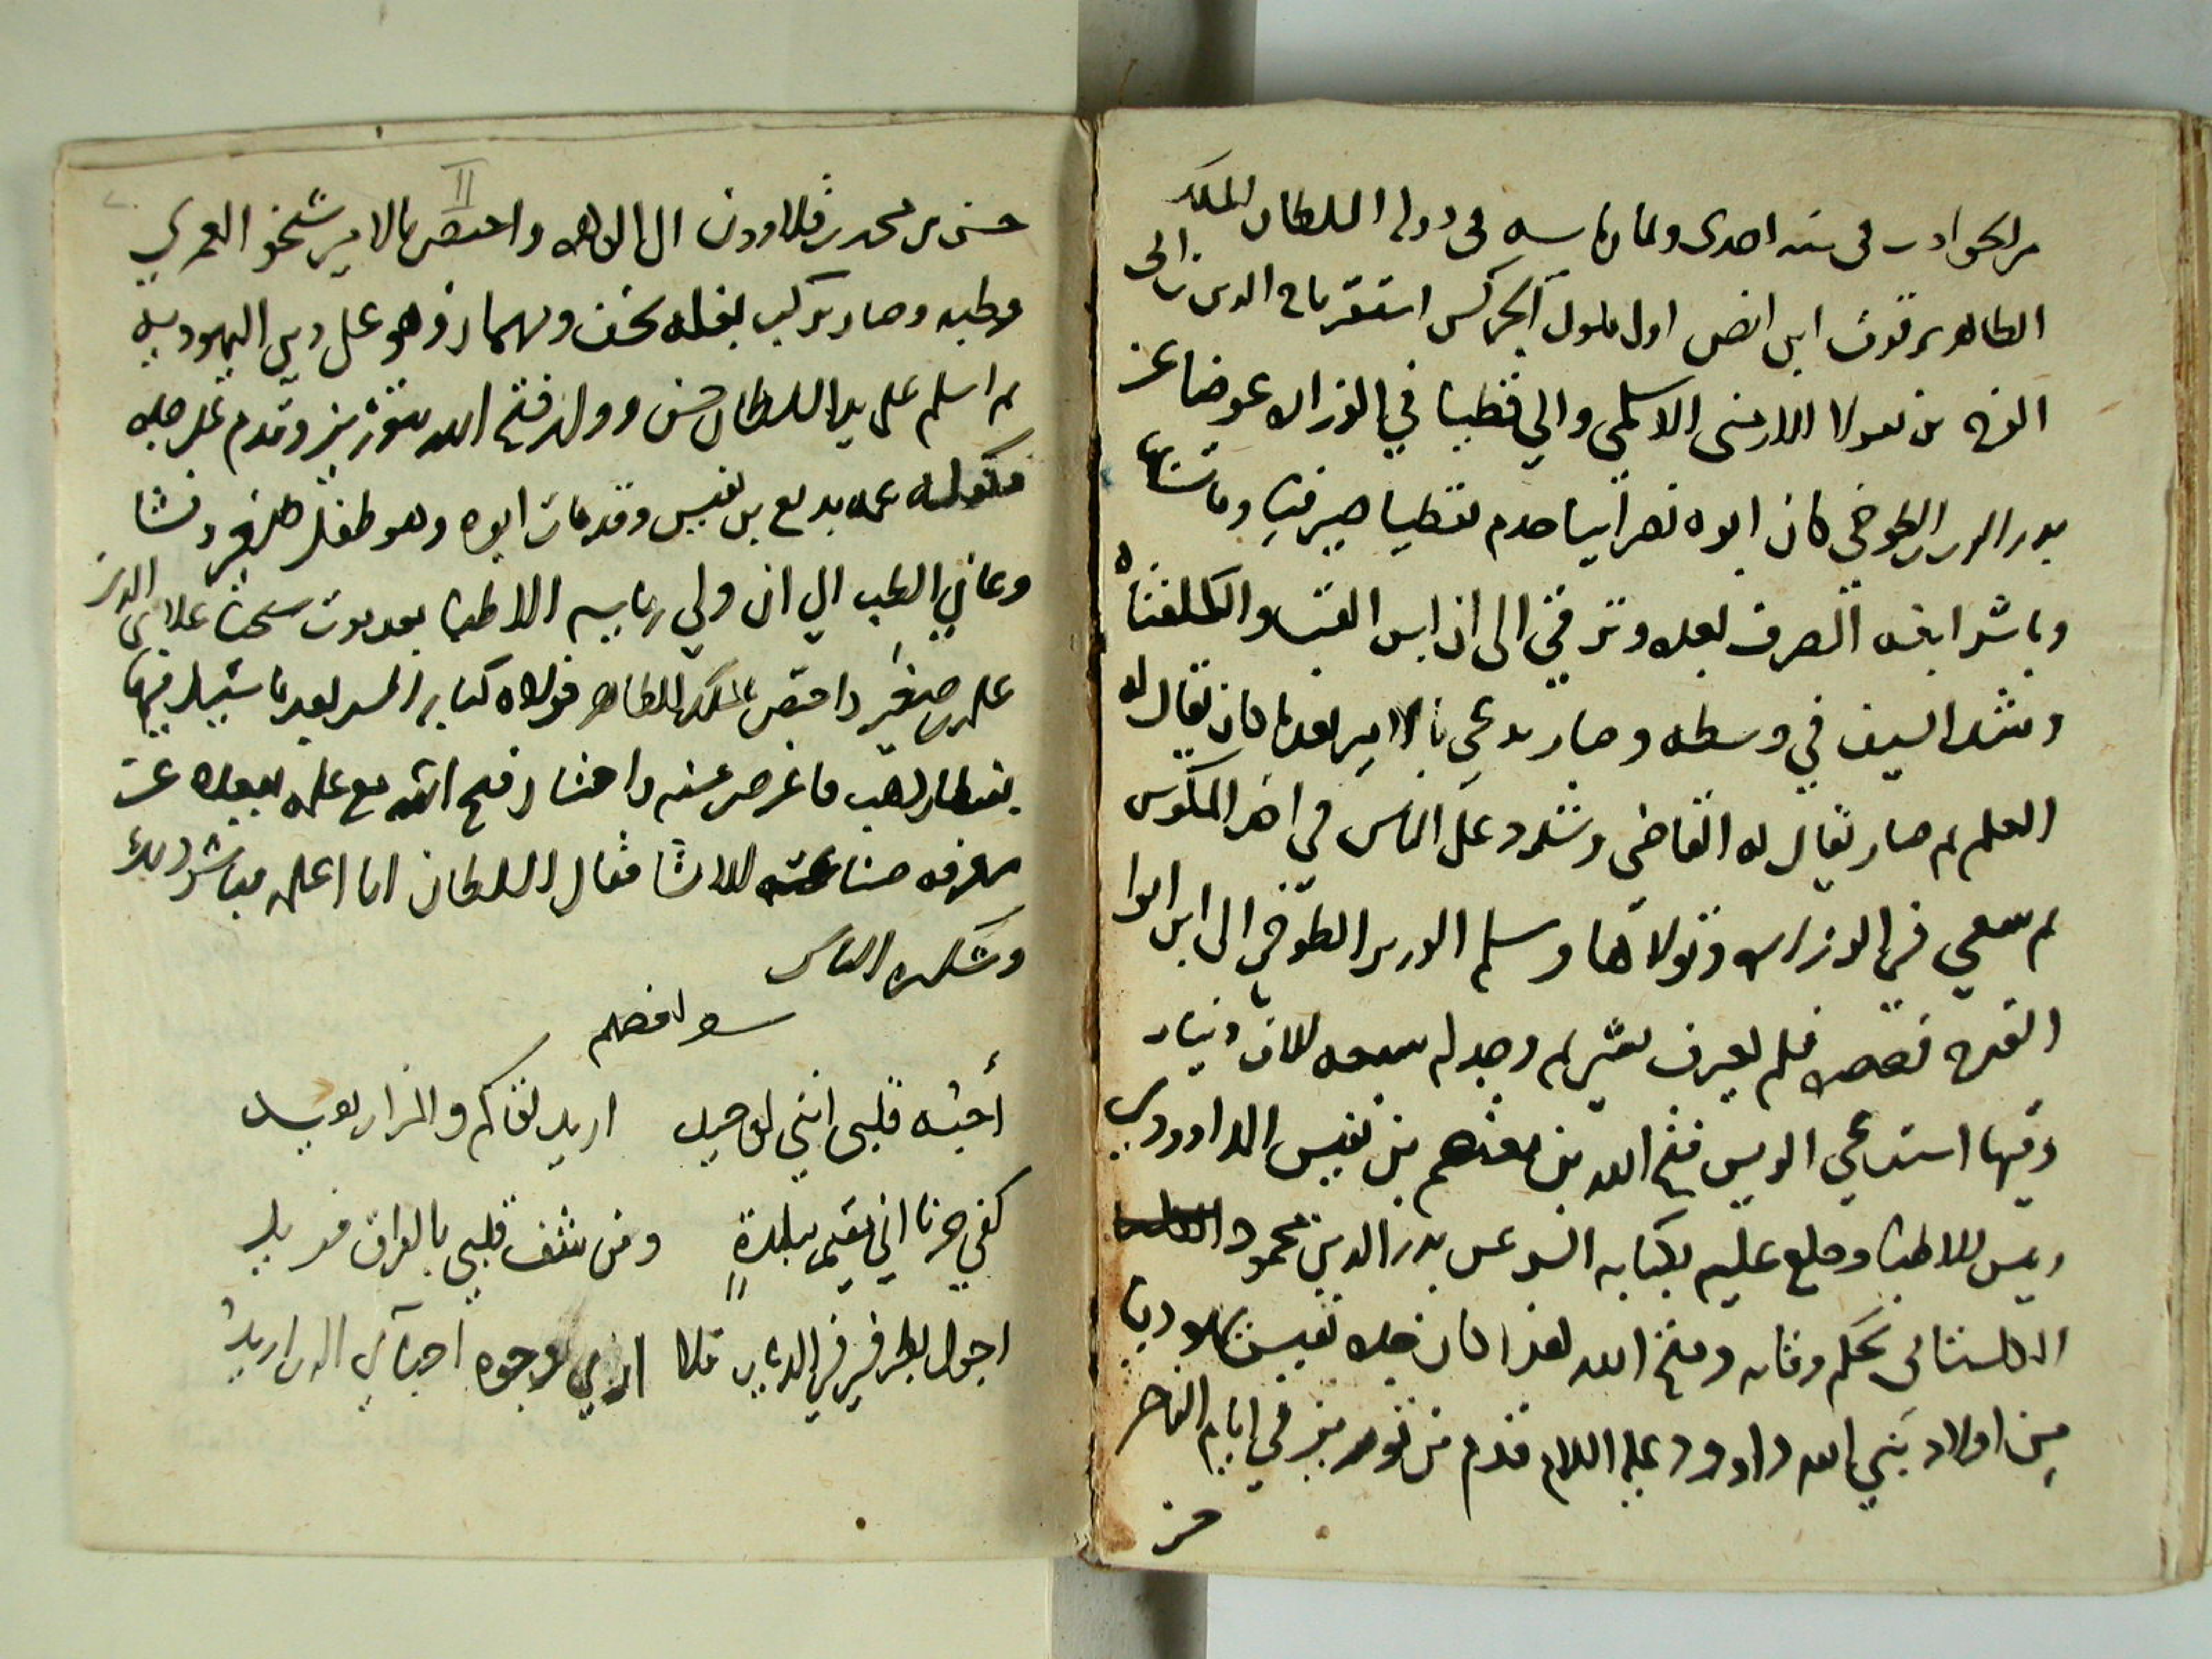 من الحوادث في سنه احدى وثمان مايه في دوله السلطان الملك
الظاهر برقوق ابن انص اول ملوك الجركس استقر تاج الدين بن ابي
الفرج بن نقولا الارمني الاسلمي والي قطيا في الوزاره عوضا عن
بدر الدين الطوخي كان ابوه نصرانيا خدم بقطيا صيرفيا ومات بها
وباشر ابنه الصرف بعده وترقي الى ان لبس القبا والكلفتاه
وشد السيف في وسطه وصار يدعي بالامير بعدما كان يقال له
المعلم ثم صار يقال له القاضي وشدد على الناس في اخذ المكوس
ثم سعي في الوزاره وتولاها وسلم الوزير الطوخي الى ابن ابوا
الفرج فلم يعترف بشي ثم وجد له سبعه الاف دينار
وفيها استدعي الريس فتح الله بن معتصم بن نفيس الداوودي
ريس الاطبا وخلع عليه بكتابه السر عن بدر الدين محمود
الكلستاني بحكم وفاته وفتح الله هذا كان جده نفيس يهوديا
من اولاد نبي الله داوود عليه السلام قدم من توريز في ايام الناصر
حسن
حسن بن محمد بن قلاوون الى القاهره واختص بالامير شيخو العمري
وطببه وصار يركب بغله بخف ومهماز وهو على دين اليهوديه
ثم اسلم على يد السلطان حسن وولد فتح الله بتوريز وقدم على جده
فكفله عمه بديع بن نفيس وقد مات ابوه وهو طفل صغير ونشا
وعاني الطب الي ان ولي رياسه الاطبا بعد موت شيخنا علاي الدين
علي بن صغير واختص بالملك الظاهر فولاه كتابه السر بعدما سئل فيها
بقنطار ذهب فاعرض عنه واختار فتح الله مع علمه ببعده عن
معرفه صناعة الانشا فقال السلطان انا اعلمه فباشر ذلك
وشكره الناس
سول بعضهم
أحبة قلبي انني لوحيد اريد لقاكم والمزار بعيد
كفي حزنا اني مقيم ببلدةٍ ومن شغف قلبي بالعراق فريد
اجول بطرفي في الديار فلا اري وجوه احباي الذين اريدُ